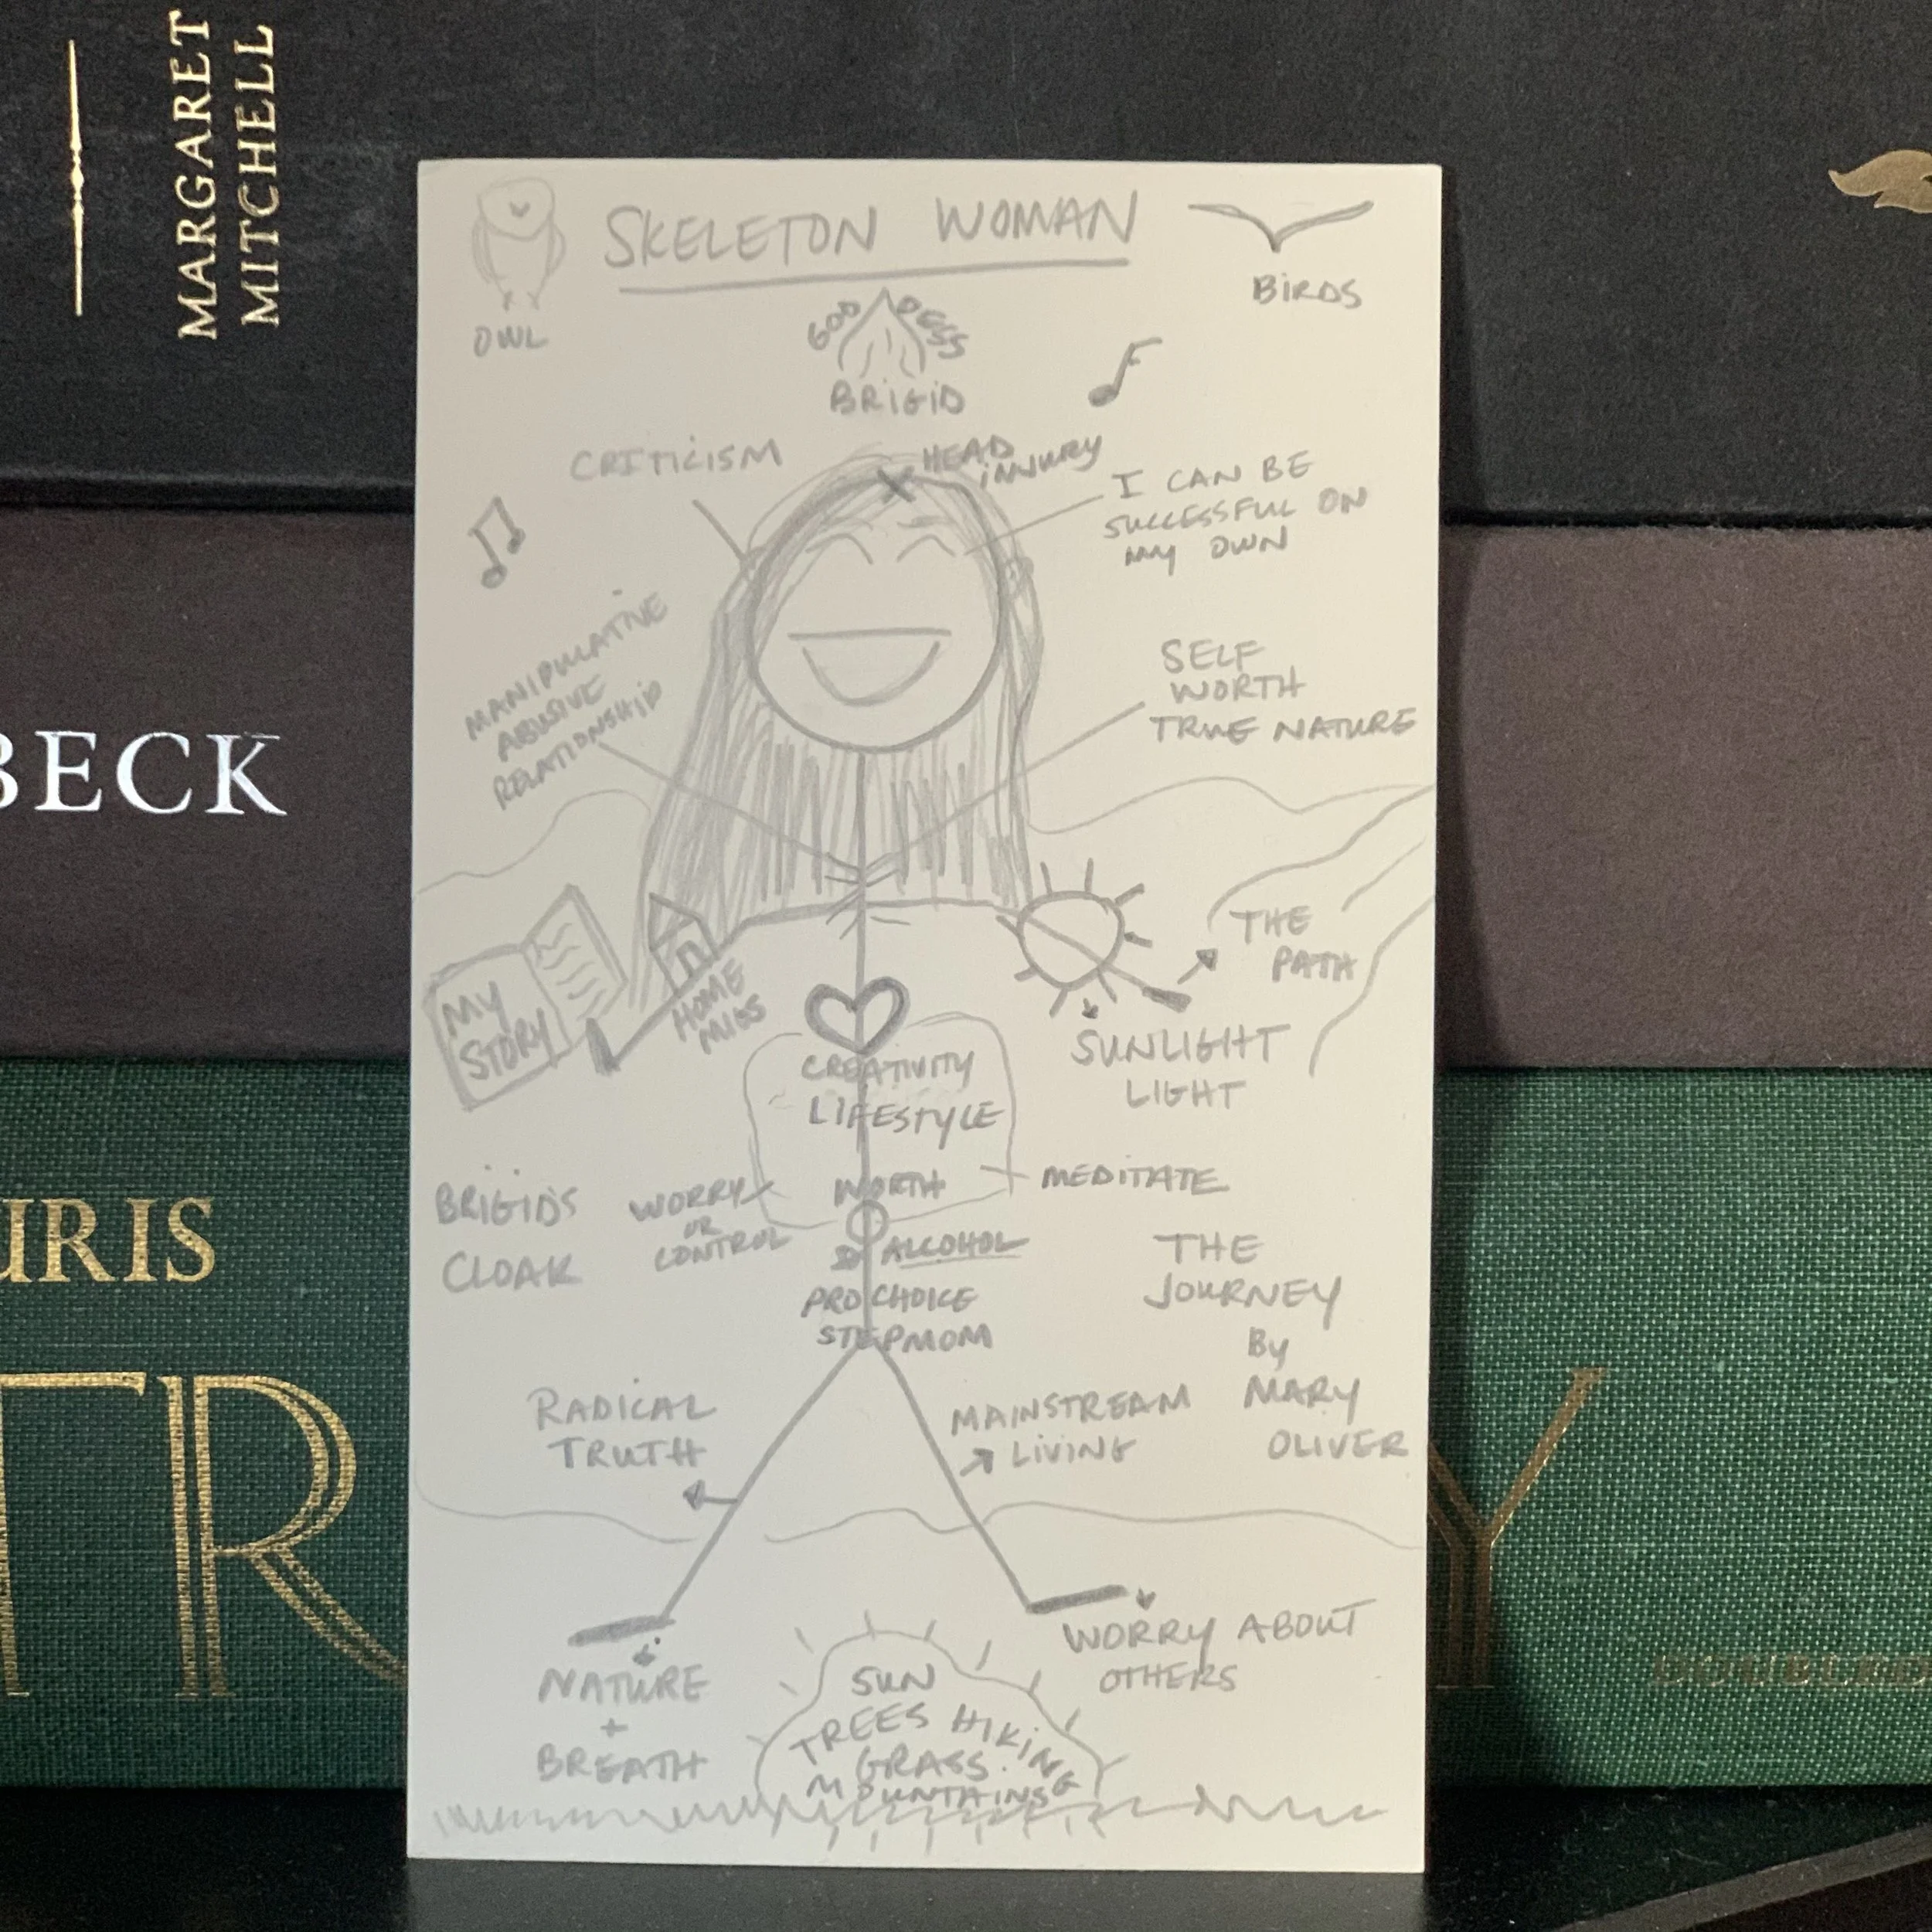 MARGARET
MITCHELL
BECK
URIS
TR
Y
DOUBLED
SKELETON WOMAN
OWL
BIRDS
GODDESS
BRIGID
CRITICISM
HEAD
INJURY
I CAN BE
SUCCESSFUL ON
MY OWN
MANIPULATIVE
ABUSIVE
RELATIONSHIP
SELF
WORTH
TRUE NATURE
MY
STORY
HOME
MUGS
THE
PATH
SUNLIGHT
LIGHT
CREATIVITY
LIFESTYLE
WORTH
BRIGID'S
CLOAK
WORRY
OR
CONTROL
MEDITATE
ALCOHOL
PRO CHOICE
STEPMOM
THE
JOURNEY
By
MARY
OLIVER
RADICAL
TRUTH
MAINSTREAM
LIVING
NATURE
+
BREATH
WORRY ABOUT
OTHERS
SUN
TREES HIKING
GRASS
MOUNTAINS